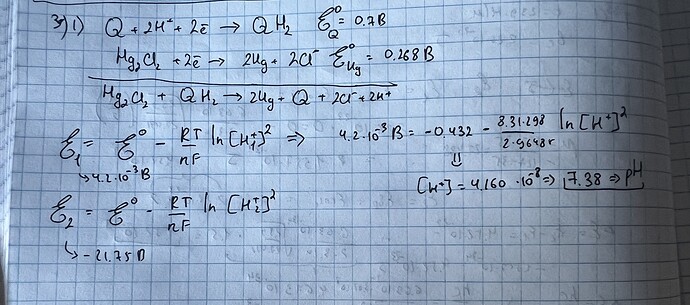 3) 1) Q + 2H⁺ + 2ē → QH₂ Ɛ°_Q = 0.7В
Hg₂Cl₂ + 2ē → 2Hg + 2Cl⁻ Ɛ°_Hg = 0.268В
Hg₂Cl₂ + QH₂ → 2Hg + Q + 2Cl⁻ + 2H⁺
Ɛ₁ = Ɛ° - RT/nF ln [H₁⁺]² ⇒ 4.2·10⁻³ В = -0.432 - 8.31·298/2·96485 ln [H⁺]²
↳ 4.2·10⁻³ В
⇓
[H⁺] = 4.160 · 10⁻⁸ ⇒ 7.38 ⇒ pH
Ɛ₂ = Ɛ° - RT/nF ln [H₂⁺]²
↳ -21.75 В